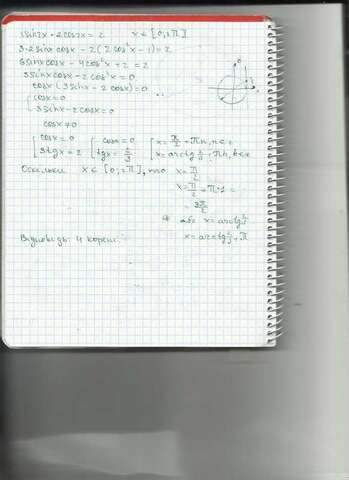 3sin2x - 2cos2x = 2 x ∈ [0; 2π]
3·2sinx cosx - 2(2cos²x - 1) = 2
6sinx cosx - 4cos²x + 2 = 2
3sinx cosx - 2cos²x = 0
cosx (3sinx - 2cosx) = 0
cosx = 0
3sinx - 2cosx = 0
cosx ≠ 0
cosx = 0 cosx = 0 x = π/2 + πn, n ∈
3tgx = 2 tgx = 2/3 x = arctg 2/3 + πk, k ∈
Оскільки x ∈ [0; 2π], то x = π/2
x = π/2 + π·1 =
= 3π/2
або x = arctg 2/3
x = arctg 2/3 + π
Відповідь: 4 корені